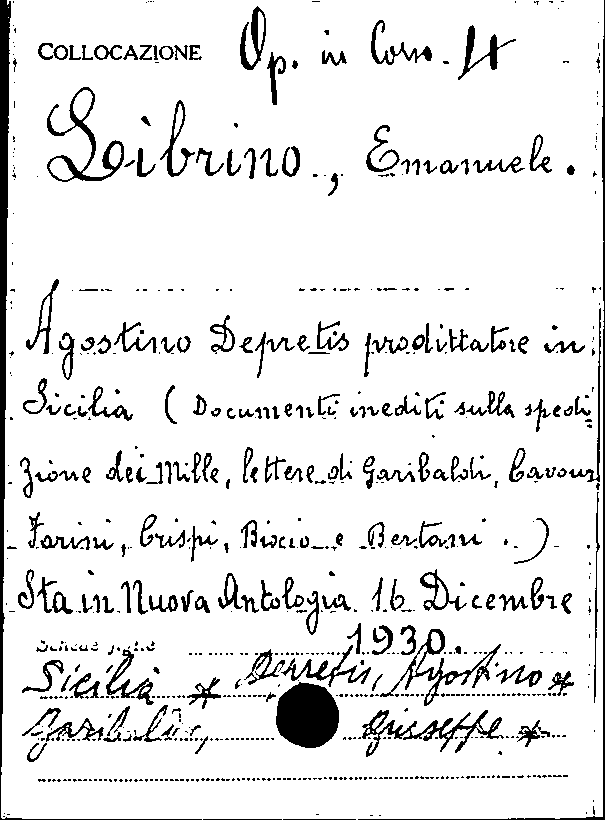 COLLOCAZIONE Op. in Corso. 4
Librino, Emanuele.
Agostino Depretis prodittatore in
Sicilia (Documenti inediti sulla spedi=
zione dei Mille, lettere di Garibaldi, Cavour
Farini, Crispi, Bixio e Bertani.)
Sta in Nuova Antologia 16 Dicembre
1930.
Schede
Sicilia * Depretis, Agostino *
Garibaldi, Giuseppe *